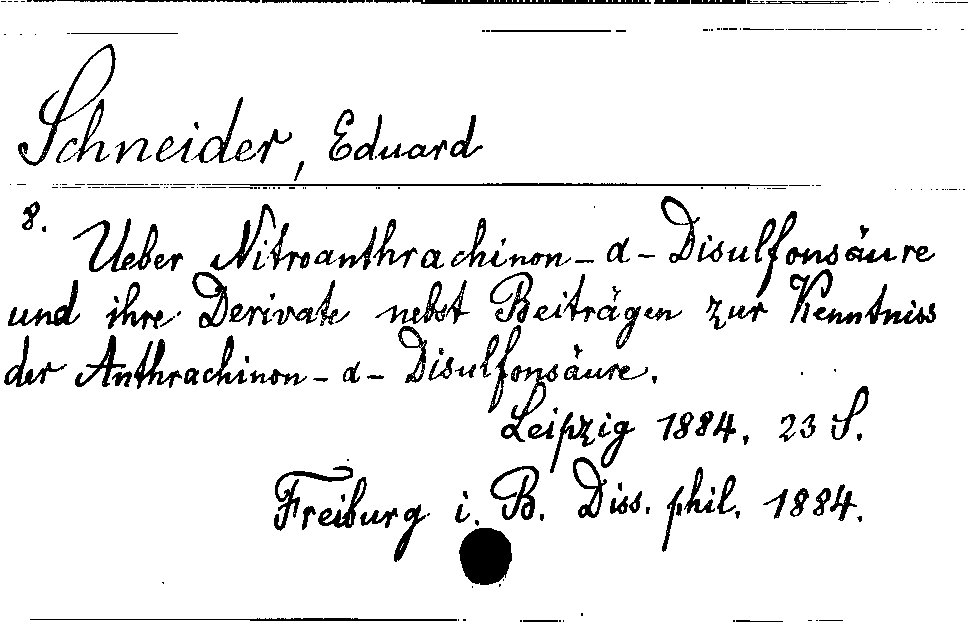 Schneider, Eduard
8.
Ueber Nitroanthrachinon-α-Disulfonsäure
und ihre Derivate nebst Beiträgen zur Kenntniss
der Anthrachinon-α-Disulfonsäure.
Leipzig 1884. 23 S.
Freiburg i. B. Diss. phil. 1884.